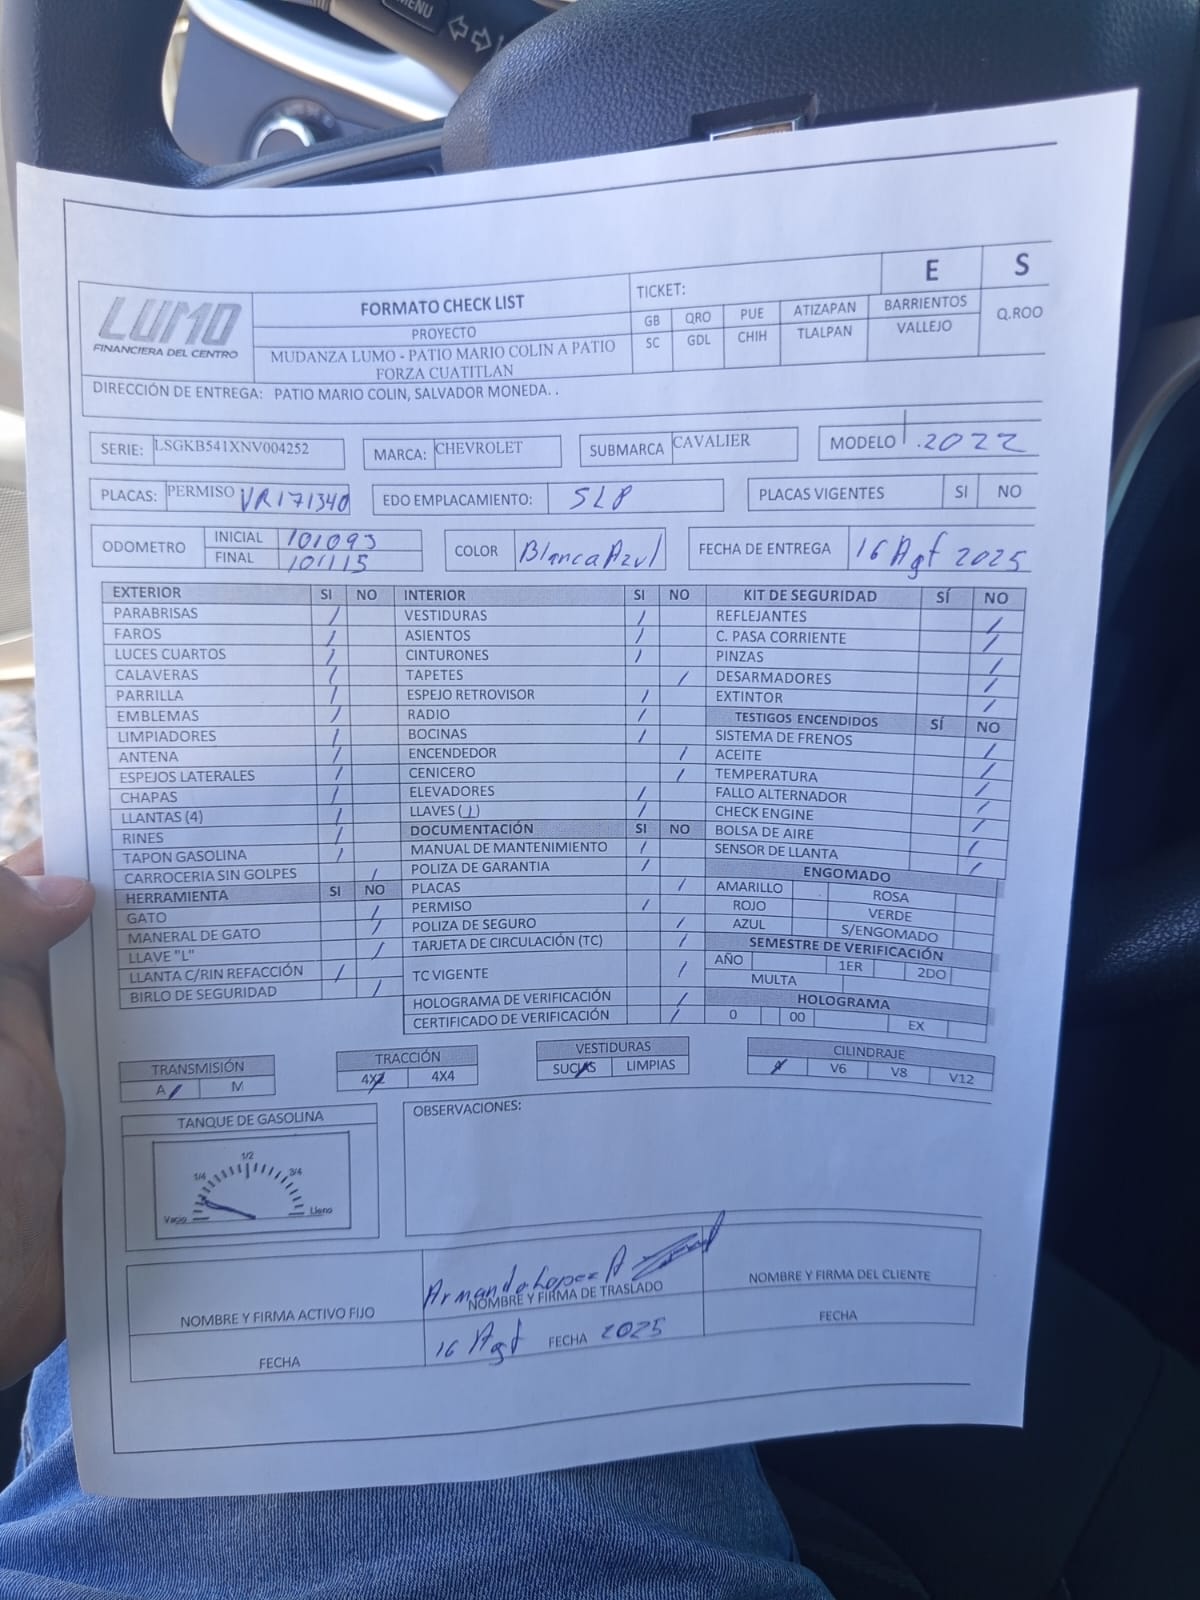 MENU
LUMO
FINANCIERA DEL CENTRO
FORMATO CHECK LIST
PROYECTO
MUDANZA LUMO - PATIO MARIO COLIN A PATIO
FORZA CUATITLAN
TICKET: E S
GB QRO PUE ATIZAPAN BARRIENTOS Q.ROO
SC GDL CHIH TLALPAN VALLEJO
DIRECCIÓN DE ENTREGA: PATIO MARIO COLIN, SALVADOR MONEDA. .
SERIE: LSGKB541XNV004252 MARCA: CHEVROLET SUBMARCA CAVALIER MODELO .2022
PLACAS: PERMISO VR171340 EDO EMPLACAMIENTO: SLP PLACAS VIGENTES SI NO
ODOMETRO INICIAL 101093 COLOR Blanca Azul FECHA DE ENTREGA 16 Agt 2025
FINAL 101115
EXTERIOR SI NO INTERIOR SI NO KIT DE SEGURIDAD SÍ NO
PARABRISAS / VESTIDURAS / REFLEJANTES /
FAROS / ASIENTOS / C. PASA CORRIENTE /
LUCES CUARTOS / CINTURONES / PINZAS /
CALAVERAS / TAPETES / DESARMADORES /
PARRILLA / ESPEJO RETROVISOR / EXTINTOR /
EMBLEMAS / RADIO / TESTIGOS ENCENDIDOS SÍ NO
LIMPIADORES / BOCINAS / SISTEMA DE FRENOS /
ANTENA / ENCENDEDOR / ACEITE /
ESPEJOS LATERALES / CENICERO / TEMPERATURA /
CHAPAS / ELEVADORES / FALLO ALTERNADOR /
LLANTAS (4) / LLAVES (1) / CHECK ENGINE /
RINES / DOCUMENTACIÓN SI NO BOLSA DE AIRE /
TAPON GASOLINA / MANUAL DE MANTENIMIENTO / SENSOR DE LLANTA /
CARROCERIA SIN GOLPES / POLIZA DE GARANTIA / ENGOMADO
HERRAMIENTA SI NO PLACAS / AMARILLO ROSA
GATO / PERMISO / ROJO VERDE
MANERAL DE GATO POLIZA DE SEGURO / AZUL S/ENGOMADO
LLAVE "L" / TARJETA DE CIRCULACIÓN (TC) / SEMESTRE DE VERIFICACIÓN
LLANTA C/RIN REFACCIÓN / TC VIGENTE / AÑO 1ER 2DO
BIRLO DE SEGURIDAD / MULTA
HOLOGRAMA DE VERIFICACIÓN / HOLOGRAMA
CERTIFICADO DE VERIFICACIÓN / 0 00 EX
TRANSMISIÓN TRACCIÓN VESTIDURAS CILINDRAJE
A / M 4X2 4X4 SUCIAS LIMPIAS V6 V8 V12
TANQUE DE GASOLINA OBSERVACIONES:
1/4 1/2 3/4
Vacio Lleno
Armando Lopez A
NOMBRE Y FIRMA ACTIVO FIJO NOMBRE Y FIRMA DE TRASLADO NOMBRE Y FIRMA DEL CLIENTE
FECHA 16 Agt FECHA 2025 FECHA